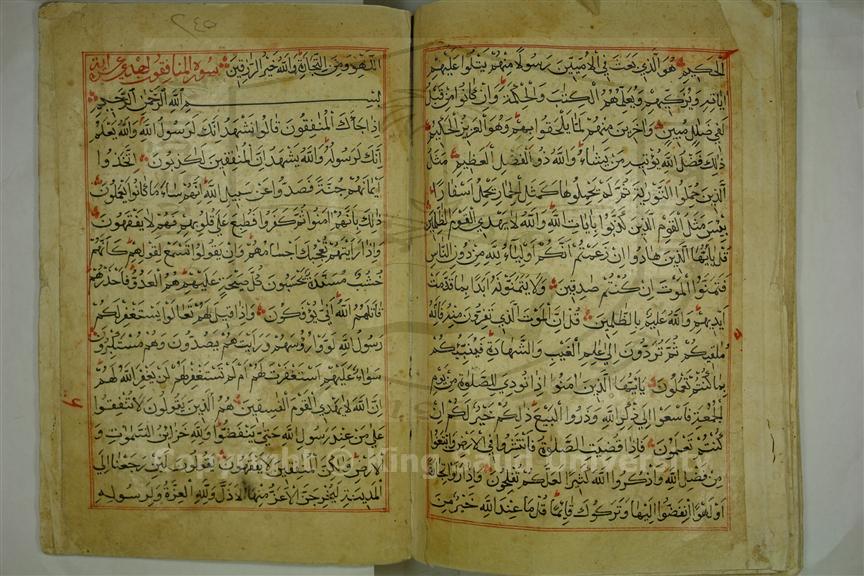 الحكيم هو الذي بعث في الاميين رسولا منهم يتلوا عليهم
اياته ويزكيهم ويعلمهم الكتاب والحكمة وان كانوا من قبل
لفي ضلال مبين واخرين منهم لما يلحقوا بهم وهو العزيز الحكيم
ذلك فضل الله يؤتيه من يشاء والله ذو الفضل العظيم مثل
الذين حملوا التورية ثم لم يحملوها كمثل الحمار يحمل اسفارا
بئس مثل القوم الذين كذبوا بايات الله والله لا يهدي القوم الظلمين
قل يا ايها الذين هادوا ان زعمتم انكم اولياء لله من دون الناس
فتمنوا الموت ان كنتم صدقين ولا يتمنونه ابدا بما قدمت
ايديهم والله عليم بالظلمين قل ان الموت الذي تفرون منه فانه
ملقيكم ثم تردون الى علم الغيب والشهادة فينبئكم
بما كنتم تعملون يا ايها الذين امنوا اذا نودي للصلوة من يوم
الجمعة فاسعوا الى ذكر الله وذروا البيع ذلكم خير لكم ان
كنتم تعلمون فاذا قضيت الصلوة فانتشروا في الارض وابتغوا
من فضل الله واذكروا الله كثيرا لعلكم تفلحون واذا راوا تجارة
او لهوا انفضوا اليها وتركوك قائما قل ما عند الله خير من
اللهو ومن التجارة والله خير الرازقين سورة المنافقون احدى عشر اية
بسم الله الرحمن الرحيم
اذا جاءك المنفقون قالوا نشهد انك لرسول الله والله يعلم
انك لرسوله والله يشهد ان المنفقين لكذبون اتخذوا
ايمانهم جنة فصدوا عن سبيل الله انهم ساء ما كانوا يعملون
ذلك بانهم امنوا ثم كفروا فطبع على قلوبهم فهم لا يفقهون
واذا رايتهم تعجبك اجسامهم وان يقولوا تسمع لقولهم كانهم
خشب مسندة يحسبون كل صيحة عليهم هم العدو فاحذرهم
قاتلهم الله انى يؤفكون واذا قيل لهم تعالوا يستغفر لكم
رسول الله لووا رؤسهم ورايتهم يصدون وهم مستكبرون
سواء عليهم استغفرت لهم ام لم تستغفر لهم لن يغفر الله لهم
ان الله لا يهدي القوم الفسقين هم الذين يقولون لا تنفقوا
على من عند رسول الله حتى ينفضوا ولله خزائن السموات و
الارض ولكن المنفقين لا يفقهون يقولون لئن رجعنا الى
المدينة ليخرجن الاعز منها الاذل ولله العزة ولرسوله
Copyright © King Saud University